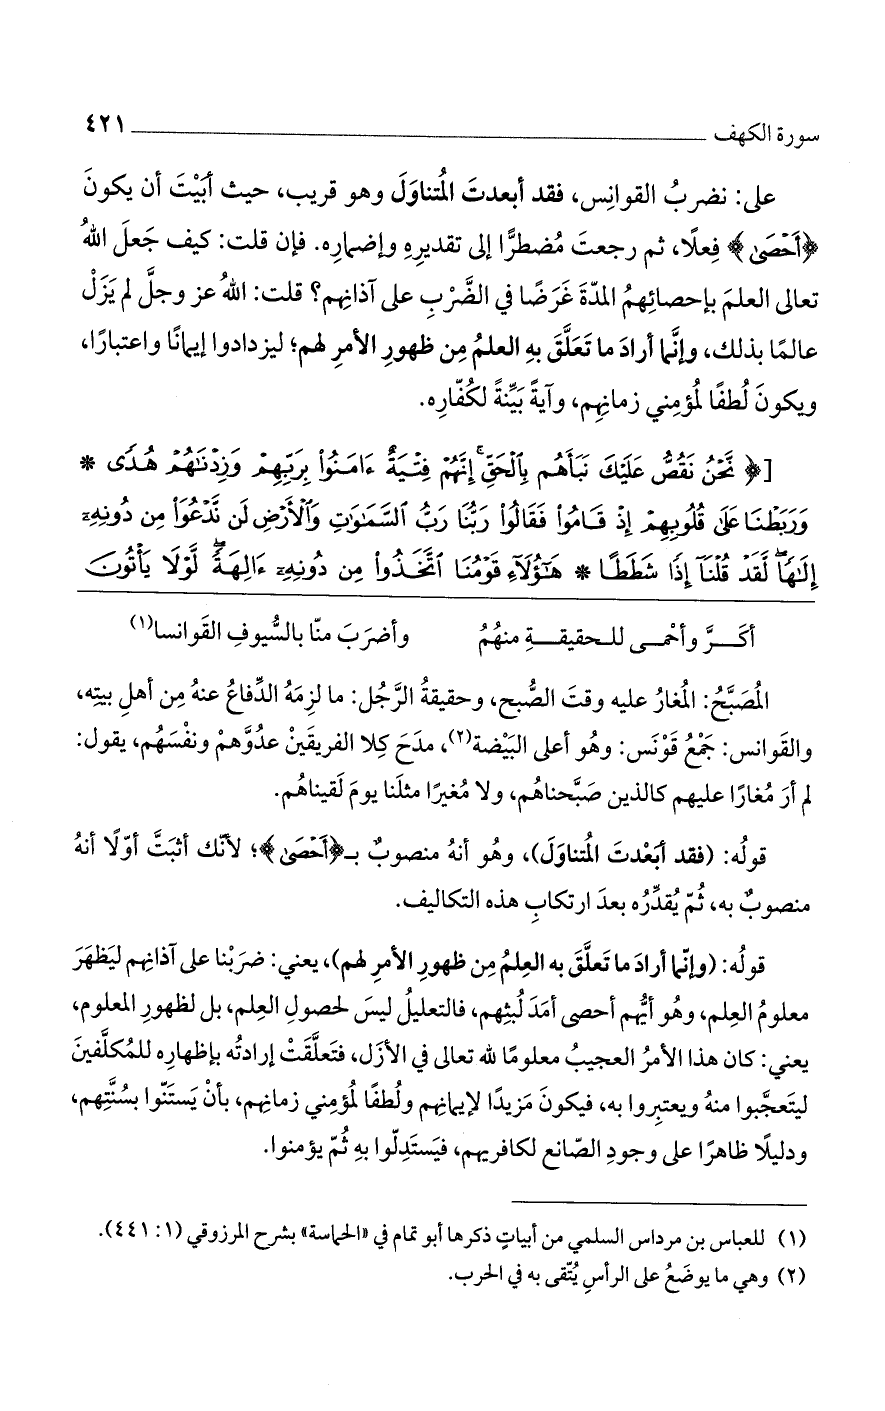 سورة الكهف ٤٢١
على: نضربُ القوانِس، فقد أبعدتَ المُتناوَلَ وهو قريب، حيث أبَيْتَ أن يكونَ
﴿أَحْصَىٰ﴾ فِعلًا، ثم رجعتَ مُضطرًّا إلى تقديرِهِ وإضمارِه. فإن قلت: كيف جَعلَ اللهُ
تعالى العلمَ بإحصائِهِمُ المدّةَ غَرَضًا في الضَّرْبِ على آذانِهم؟ قلت: اللهُ عز وجلَّ لم يَزَلْ
عالمًا بذلك، وإنَّما أرادَ ما تَعَلَّقَ بهِ العلمُ مِن ظهورِ الأمرِ لهم؛ ليزدادوا إيمانًا واعتبارًا،
ويكونَ لُطفًا لمُؤمِني زمانِهم، وآيةً بَيِّنةً لكُفّارِه.
[﴿ نَّحْنُ نَقُصُّ عَلَيْكَ نَبَأَهُم بِٱلْحَقِّ ۚ إِنَّهُمْ فِتْيَةٌ ءَامَنُوا۟ بِرَبِّهِمْ وَزِدْنَٰهُمْ هُدًى *
وَرَبَطْنَا عَلَىٰ قُلُوبِهِمْ إِذْ قَامُوا۟ فَقَالُوا۟ رَبُّنَا رَبُّ ٱلسَّمَٰوَٰتِ وَٱلْأَرْضِ لَن نَّدْعُوَا۟ مِن دُونِهِۦٓ
إِلَٰهًا ۖ لَّقَدْ قُلْنَآ إِذًا شَطَطًا * هَٰٓؤُلَآءِ قَوْمُنَا ٱتَّخَذُوا۟ مِن دُونِهِۦٓ ءَالِهَةً ۖ لَّوْلَا يَأْتُونَ
أكَـــرَّ وأحْمـــى للـحقيقـــةِ منهُمُ وأضرَبَ منّا بالسُّيوفِ القَوانسا(١)
المُصَبَّحُ: المُغارُ عليه وقتَ الصُّبح، وحقيقةُ الرَّجُل: ما لزِمَهُ الدِّفاعُ عنهُ مِن أهلِ بيتِه،
والقَوانس: جَمْعُ قَوْنَس: وهُو أعلى البَيْضة(٢)، مدَحَ كِلا الفريقَيْنْ عدُوَّهمْ ونفْسَهُم، يقول:
لم أرَ مُغارًا عليهم كالذين صَبَّحناهُم، ولا مُغيرًا مثلَنا يومَ لَقيناهُم.
قولُه: (فقد أبَعْدتَ المُتناوَلَ)، وهُو أنهُ منصوبٌ بـ﴿أَحْصَىٰ﴾؛ لأنَّك أثبَتَّ أوّلًا أنهُ
منصوبٌ به، ثُمّ يُقدِّرُه بعدَ ارتكابِ هذه التكاليف.
قولُه: (وإنّما أرادَ ما تَعلَّقَ به العِلمُ مِن ظهورِ الأمرِ لهم)، يعني: ضرَبْنا على آذانِهم ليَظهَرَ
معلومُ العِلم، وهُو أيُّهم أحصى أمَدَ لُبثِهم، فالتعليلُ ليسَ لحصولِ العِلم، بل لظهورِ المعلوم،
يعني: كان هذا الأمرُ العجيبُ معلومًا لله تعالى في الأزَل، فتَعلَّقَتْ إرادتُه بإظهارِه للمُكلَّفينَ
ليتَعجَّبوا منهُ ويعتبِروا به، فيكونَ مَزيدًا لإيمانِهم ولُطفًا لمُؤمِني زمانِهم، بأنْ يَستَنّوا بسُنَّتِهم،
ودليلًا ظاهرًا على وجودِ الصّانع لكافريهم، فيَستَدِلّوا بهِ ثُمّ يؤمنوا.
(١) للعباس بن مرداس السلمي من أبياتٍ ذكرها أبو تمام في «الحماسة» بشرح المرزوقي (١: ٤٤١).
(٢) وهي ما يوضَعُ على الرأسِ يُتّقى به في الحرب.